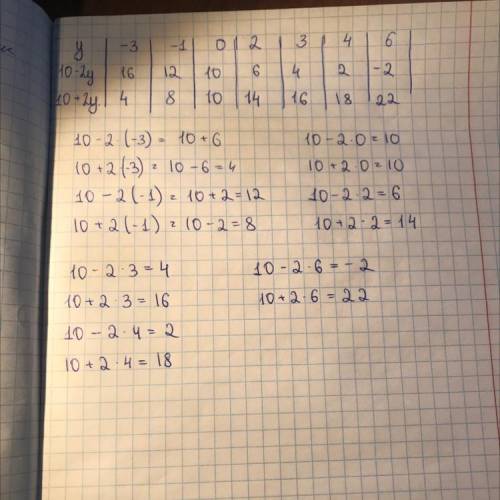 y | -3 | -1 | 0 | 2 | 3 | 4 | 6
10-2y | 16 | 12 | 10 | 6 | 4 | 2 | -2
10+2y | 4 | 8 | 10 | 14 | 16 | 18 | 22
10-2·(-3) = 10+6
10+2(-3) = 10-6=4
10-2(-1) = 10+2=12
10+2(-1) = 10-2=8
10-2·0=10
10+2·0=10
10-2·2=6
10+2·2=14
10-2·3=4
10+2·3=16
10-2·4=2
10+2·4=18
10-2·6=-2
10+2·6=22